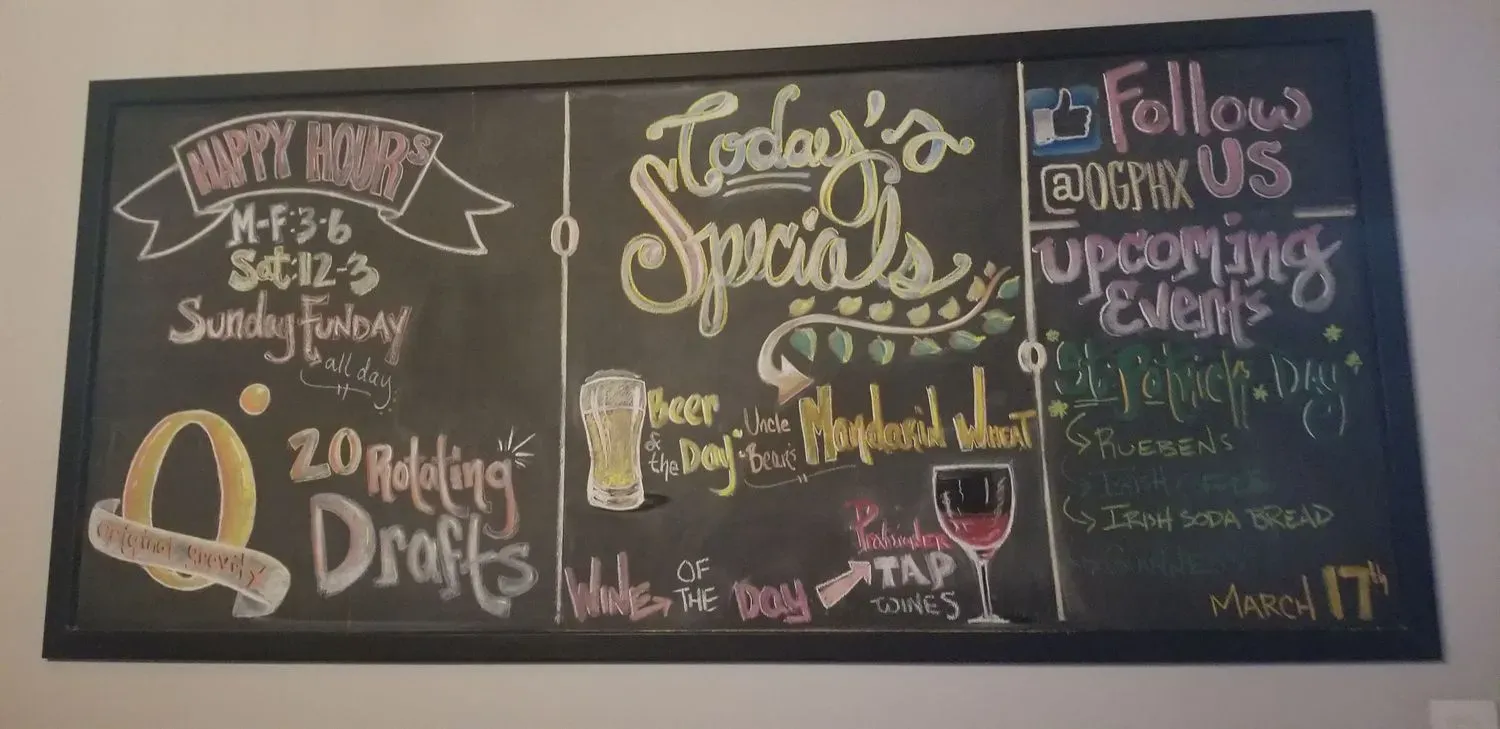 HAPPY HOURS
M-F: 3-6
Sat: 12-3
Sunday FUNDAY
all day
Original Gravity
20 Rotating
Drafts
Today's
Specials
Beer
of
the Day
Uncle
Bear's
Mandarin Wheat
WINE OF
THE DAY
TAP
WINES
Follow
US
@OGPHX
upcoming
Events
St. Patrick's Day
RUEBENS
IRISH
IRISH SODA BREAD
GUINNESS
MARCH 17th